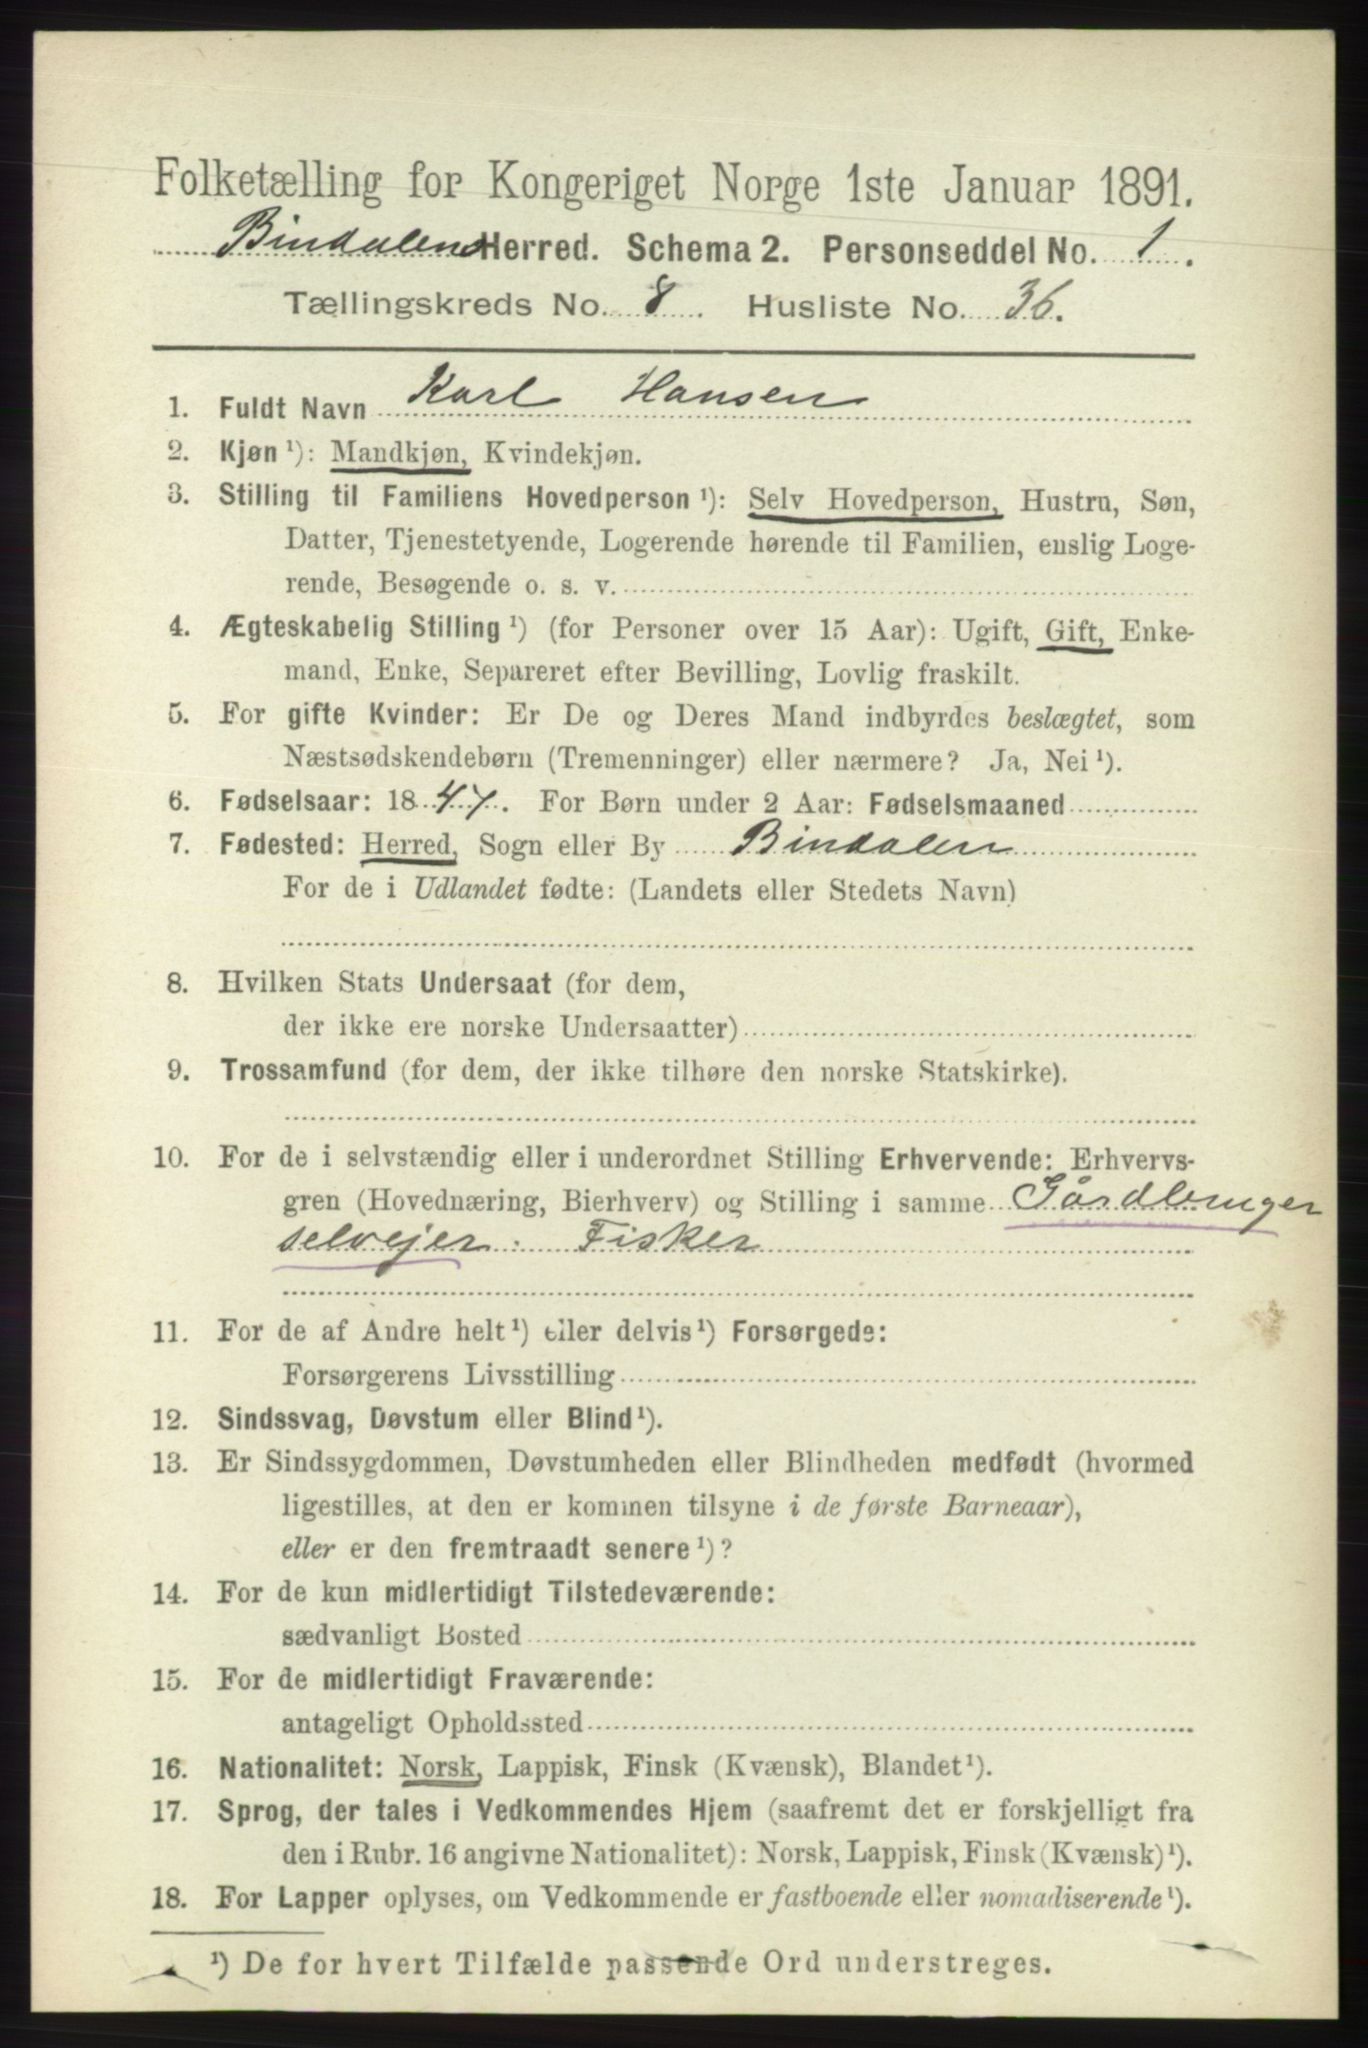 Folketælling for Kongeriget Norge 1ste Januar 1891.
Bindalens Herred. Schema 2. Personseddel No. 1.
Tællingskreds No. 8. Husliste No. 36.
1. Fuldt Navn Karl Hansen
2. Kjøn ¹): Mandkjøn, Kvindekjøn.
3. Stilling til Familiens Hovedperson ¹): Selv Hovedperson, Hustru, Søn,
Datter, Tjenestetyende, Logerende hørende til Familien, enslig Loge-
rende, Besøgende o. s. v.
4. Ægteskabelig Stilling ¹) (for Personer over 15 Aar): Ugift, Gift, Enke-
mand, Enke, Separeret efter Bevilling, Lovlig fraskilt.
5. For gifte Kvinder: Er De og Deres Mand indbyrdes beslægtet, som
Næstsødskendebørn (Tremenninger) eller nærmere? Ja, Nei ¹).
6. Fødselsaar: 1847. For Børn under 2 Aar: Fødselsmaaned
7. Fødested: Herred, Sogn eller By Bindalen
For de i Udlandet fødte: (Landets eller Stedets Navn)
8. Hvilken Stats Undersaat (for dem,
der ikke ere norske Undersaatter)
9. Trossamfund (for dem, der ikke tilhøre den norske Statskirke).
10. For de i selvstændig eller i underordnet Stilling Erhvervende: Erhvervs-
gren (Hovednæring, Bierhverv) og Stilling i samme Gårdbruger
selvejer. Fisker
11. For de af Andre helt ¹) eller delvis ¹) Forsørgede:
Forsørgerens Livsstilling
12. Sindssvag, Døvstum eller Blind ¹).
13. Er Sindssygdommen, Døvstumheden eller Blindheden medfødt (hvormed
ligestilles, at den er kommen tilsyne i de første Barneaar),
eller er den fremtraadt senere ¹)?
14. For de kun midlertidigt Tilstedeværende:
sædvanligt Bosted
15. For de midlertidigt Fraværende:
antageligt Opholdssted
16. Nationalitet: Norsk, Lappisk, Finsk (Kvænsk), Blandet ¹).
17. Sprog, der tales i Vedkommendes Hjem (saafremt det er forskjelligt fra
den i Rubr. 16 angivne Nationalitet): Norsk, Lappisk, Finsk (Kvænsk) ¹).
18. For Lapper oplyses, om Vedkommende er fastboende eller nomadiserende ¹).
¹) De for hvert Tilfælde passende Ord understreges.